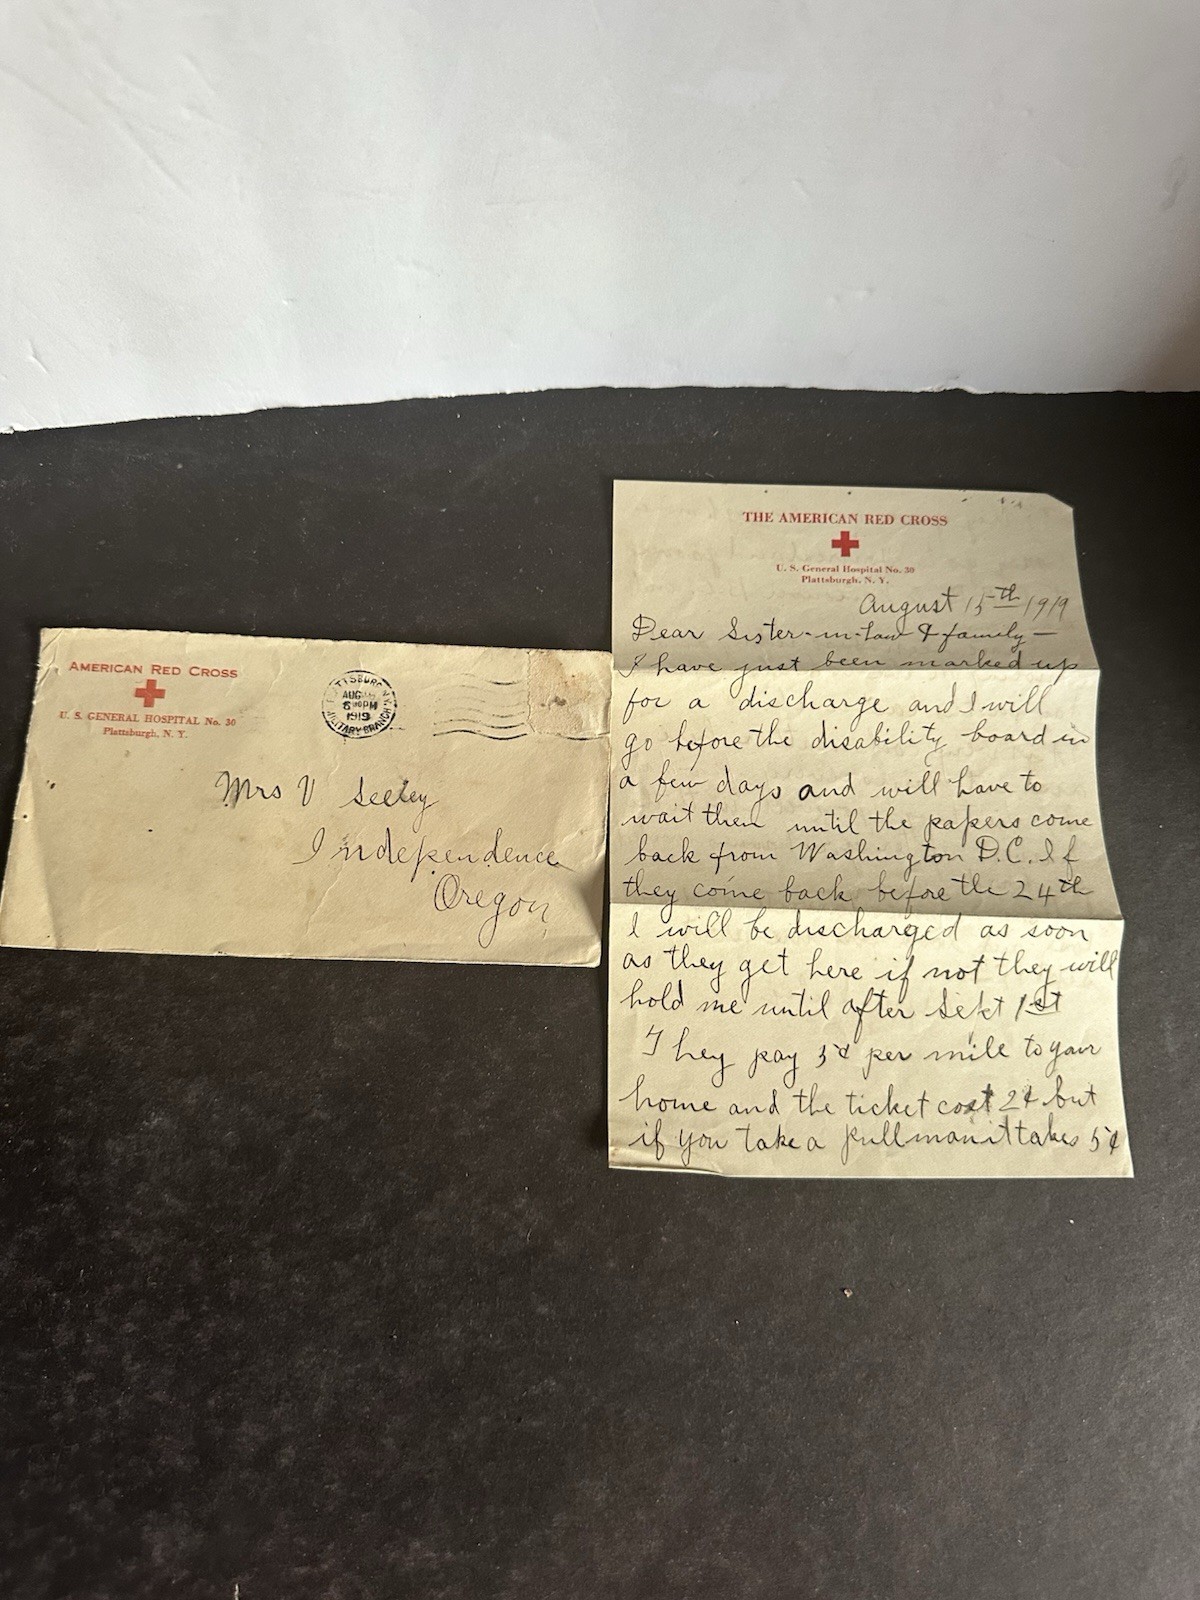 AMERICAN RED CROSS
U. S. GENERAL HOSPITAL No. 30
Plattsburgh, N. Y.
AUG
6 PM
1919
MILITARY BRANCH
Mrs V Seeley
Independence
Oregon,
THE AMERICAN RED CROSS
U. S. General Hospital No. 30
Plattsburgh, N. Y.
August 15th 1919
Dear Sister-in-law & family—
I have just been marked up
for a discharge and I will
go before the disability board in
a few days and will have to
wait then until the papers come
back from Washington D.C. If
they come back before the 24th
I will be discharged as soon
as they get here if not they will
hold me until after Sept 1st
They pay 5¢ per mile to your
home and the ticket cost 2¢ but
if you take a pullman it takes 5¢